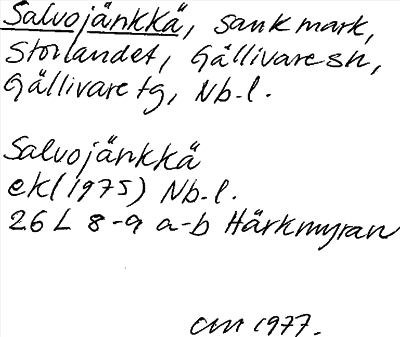 Salvojänkkä, sank mark,
Storlandet, Gällivare sn,
Gällivare tg, Nb-l.
Salvojänkkä
ek (1975) Nb-l.
26 L 8-9 a-b Härkmyran
1977.